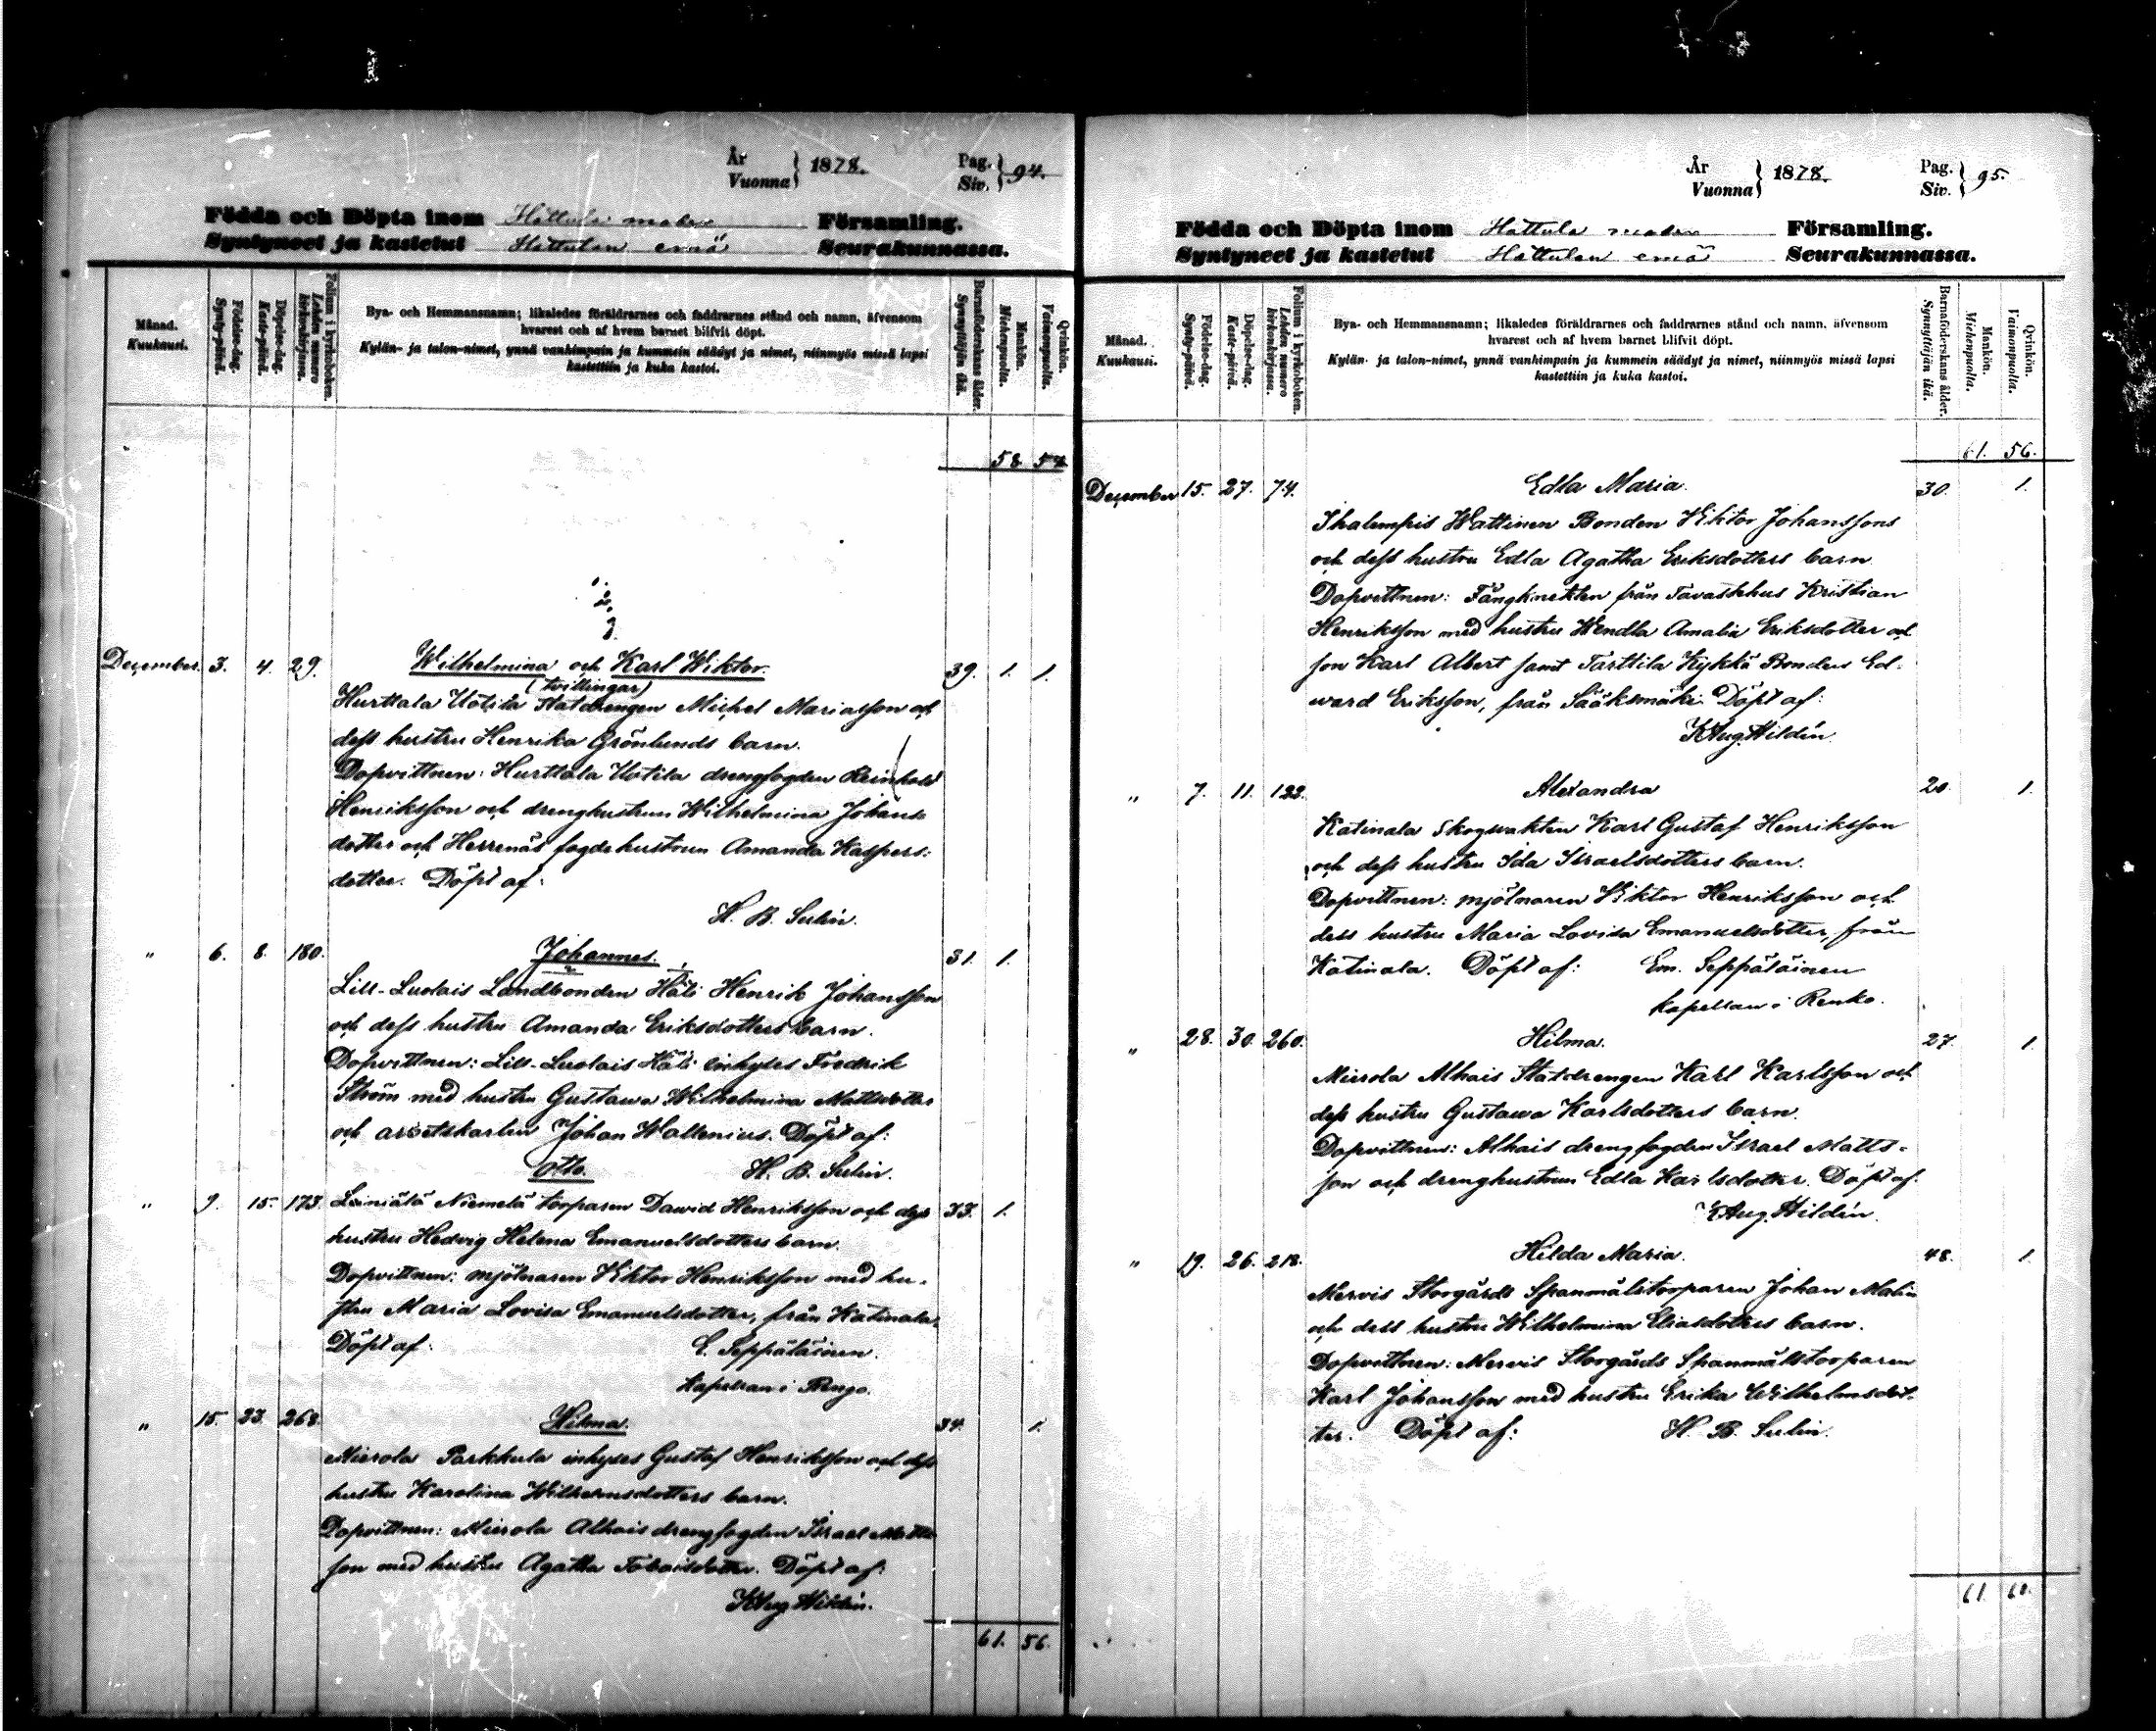 År
Vuonna } 1878.
Pag.
Siv. } 94.
Födda och Döpta inom Hattula moder Församling.
Syntyneet ja kastetut Hattulan emä Seurakunnassa.
Månad.
Kuukausi.
Födelse-dag.
Synty-päivä.
Döpelse-dag.
Kaste-päivä.
Folium i kyrkoboken.
Lehden numero
kirkonkirjassa.
Bya- och Hemmansnamn; likaledes föräldrarnes och faddrarnes stånd och namn, äfvensom
hvarest och af hvem barnet blifvit döpt.
Kylän- ja talon-nimet, ynnä vanhimpain ja kummein säädyt ja nimet, niinmyös missä lapsi
kastettiin ja kuka kastoi.
Barnaföderskans ålder.
Synnyttäjän ikä.
Mankön.
Miehenpuolta.
Qvinkön.
Vaimonpuolta.
58. 54.
December. 3. 4. 29. Wilhelmina och Karl Wiktor. 39. 1. 1.
(tvillingar)
Hurttala Uotila Statdrengen Michel Mariasson och
dess hustru Henrika Grönlunds barn.
Dopvittnen: Hurttala Uotila drengfogden Reinhold
Henriksson och drenghustrun Wilhelmina Johans-
dotter och Herrenäs fogdehustrun Amanda Kaspers-
dotter. Döpt af:
H. B. Sulin.
" 6. 8. 180. Johannes. 31. 1.
Lill-Luolais Landbonden Häti Henrik Johansson
och dess hustru Amanda Eriksdotters barn.
Dopvittnen: Lill-Luolais Häti inhyses Fredrik
Ström med hustru Gustawa Wilhelmina Mattsdotter
och arbetskarlen Johan Wallenius. Döpt af:
Otto. H. B. Sulin.
" 9. 15. 173. Leiniälä Niemelä torparen Dawid Henriksson och dess 33. 1.
hustru Hedvig Helena Emanuelsdotters barn.
Dopvittnen: mjölnaren Wiktor Henriksson med hu-
stru Maria Lovisa Emanuelsdotter, från Katinala.
Döpt af: E. Seppäläinen.
Kapellan i Rengo.
" 15. 23. 268. Hilma. 34. 1.
Mierola Parkkula inhyses Gustaf Henriksson och dess
hustru Karolina Wilhelmsdotters barn.
Dopvittnen: Mierola Alhais drengfogden Israel Matts-
son med hustru Agatha Tobiasdotter. Döpt af:
K Aug. Hildén.
61. 56.
År
Vuonna } 1878.
Pag.
Siv. } 95.
Födda och Döpta inom Hattula moder Församling.
Syntyneet ja kastetut Hattulan emä Seurakunnassa.
Månad.
Kuukausi.
Födelse-dag.
Synty-päivä.
Döpelse-dag.
Kaste-päivä.
Folium i kyrkoboken.
Lehden numero
kirkonkirjassa.
Bya- och Hemmansnamn; likaledes föräldrarnes och faddrarnes stånd och namn, äfvensom
hvarest och af hvem barnet blifvit döpt.
Kylän- ja talon-nimet, ynnä vanhimpain ja kummein säädyt ja nimet, niinmyös missä lapsi
kastettiin ja kuka kastoi.
Barnaföderskans ålder.
Synnyttäjän ikä.
Mankön.
Miehenpuolta.
Qvinkön.
Vaimonpuolta.
61. 56.
December 15. 27. 74. Edla Maria. 30. 1.
Ihalempis Wattinen Bonden Wiktor Johanssons
och dess hustru Edla Agatha Eriksdotters barn.
Dopvittnen: Fångknekten från Tavastehus Kristian
Henriksson med hustru Wendla Amalia Eriksdotter och
son Karl Albert samt Tarttila Kykkä Bonden Ed-
ward Eriksson, från Sääksmäki. Döpt af:
K Aug. Hildén.
" 7. 11. 122. Alexandra 20. 1.
Katinala Skogvakten Karl Gustaf Henriksson
och dess hustru Ida Israelsdotters barn.
Dopvittnen: mjölnaren Wiktor Henriksson och
dess hustru Maria Lovisa Emanuelsdotter, från
Katinala. Döpt af: Em. Seppäläinen
kapellan i Renko.
" 28. 30. 260. Hilma. 27. 1.
Mierola Alhais Statdrengen Karl Karlsson och
dess hustru Gustawa Karlsdotters barn.
Dopvittnen: Alhais drengfogden Israel Matts-
son och drenghustrun Edla Karlsdotter. Döpt af:
K Aug. Hildén.
" 19. 26. 218. Hilda Maria. 48. 1.
Mervis Storgårds Spanmålstorparen Johan Malin
och dess hustru Wilhelmina Eliasdotters barn.
Dopvittnen: Mervis Storgårds Spanmålstorparen
Karl Johansson med hustru Erika Wilhelmsdot-
ter. Döpt af: H. B. Sulin.
61. 60.